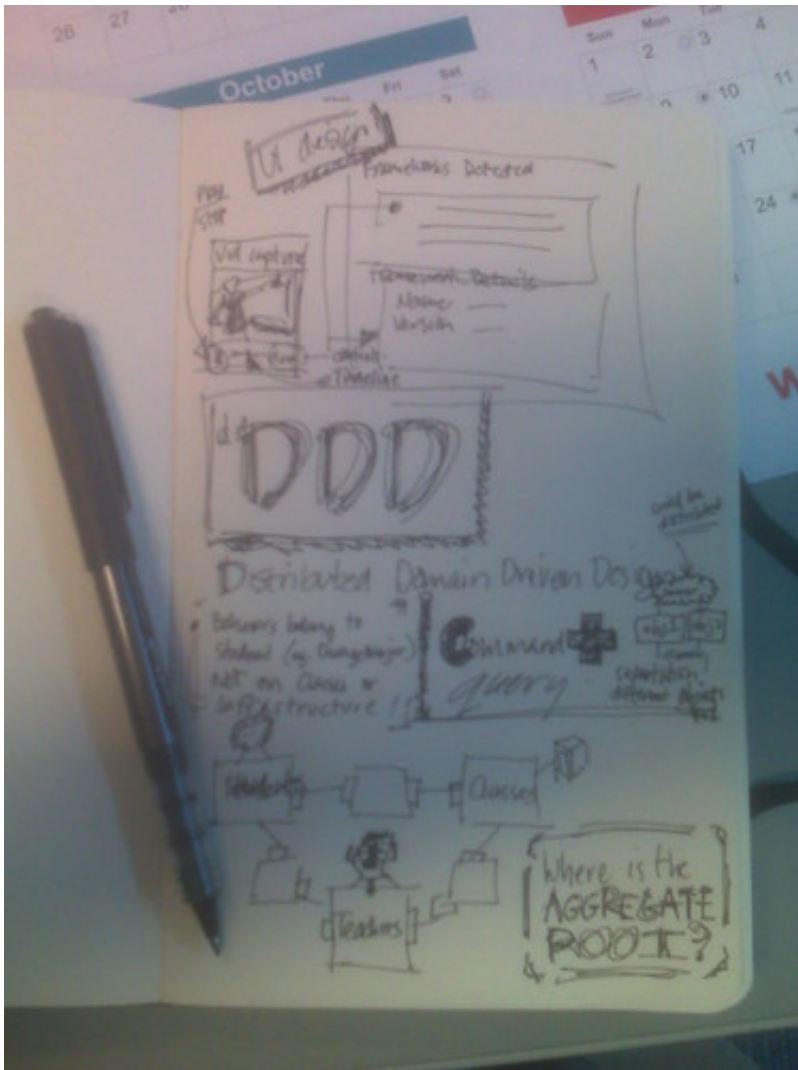 26 27 28
October
Fri Sat
Sun Mon Tue
1 2 3 4
10 11
17
24
UI design
Frameworks Detected
Play
Stop
Vid capture
Framework Details
Name
Version
control
Timeline
DDD
Distributed Domain Driven Design
could be
distributed
Behaviors belong to
Student (eg ChangeMajor)
NOT on Classes or
Infrastructure!!
Command +
query
different
Students
Classes
Teachers
Where is the
AGGREGATE
ROOT?